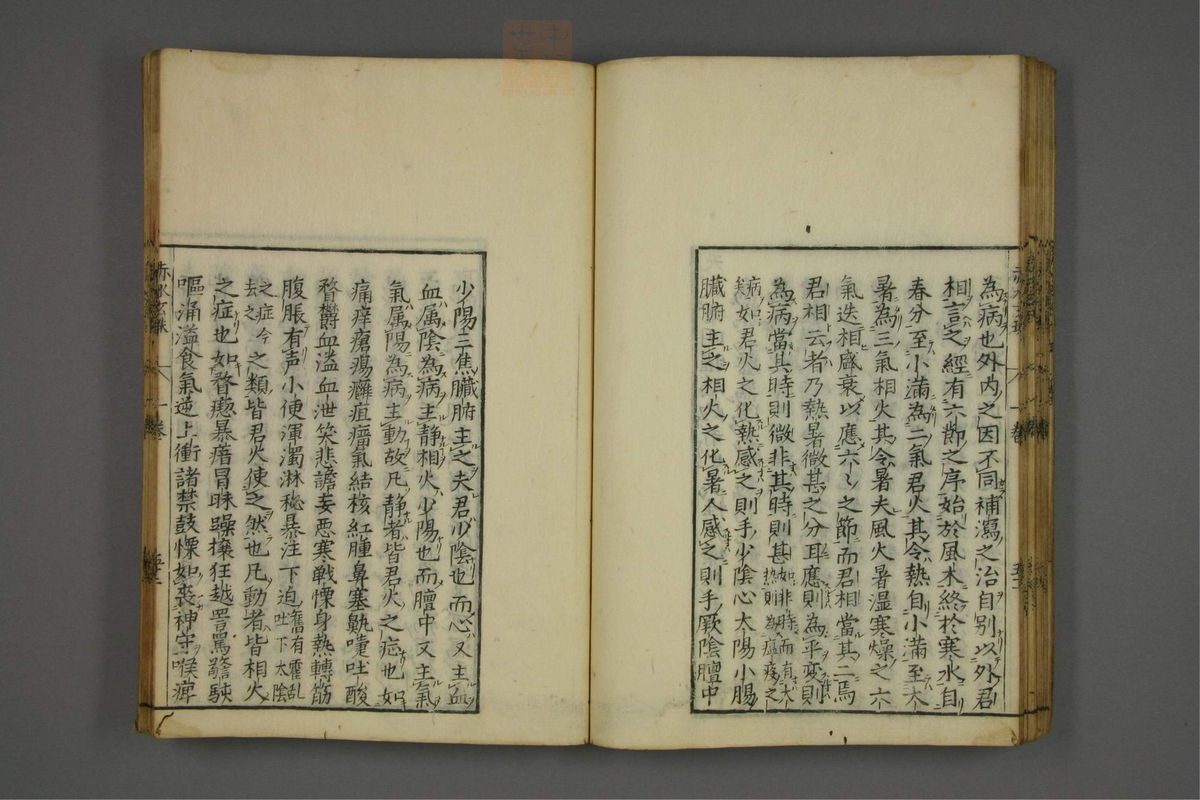 為病也外内之因不同補瀉之治自別以外君
相言之經有六節之序始於風木終於寒水自
春分至小滿為二氣君火其令熱自小滿至大
暑為三氣相火其令暑夫風火暑湿寒燥之六
氣迭相盛衰以應六〻之節而君相當其二焉
君相云者乃熱暑微甚之分耳應則為平変則
為病當其時則微非其時則甚如非時而有大熱則為瘟疫之
病矣如君火之化熱感之則手少陰心太陽小腸
臓腑主之相火之化暑人感之則手厥陰膻中
少陽三焦臓腑主之夫君少陰也而心又主血
血属陰為病主静相火少陽也而膻中又主氣
氣属陽為病主動故凡静者皆君火之症也如
痛痒瘡瘍癬疽瘤氣結核紅腫鼻塞鼽嚏吐酸
瞀欝血溢血泄笑悲譫妄悪寒戦慄身熱轉筋
腹脹有声小便渾濁淋秘暴注下迫舊有霍乱吐下太陰
之症今去之之類皆君火使之然也凡動者皆相火
之症也如瞀瘛暴瘖冒昧躁擾狂越詈罵驚駭
嘔涌溢食氣逆上衝諸禁鼓慄如喪神守喉痺
赤水玄珠
一卷